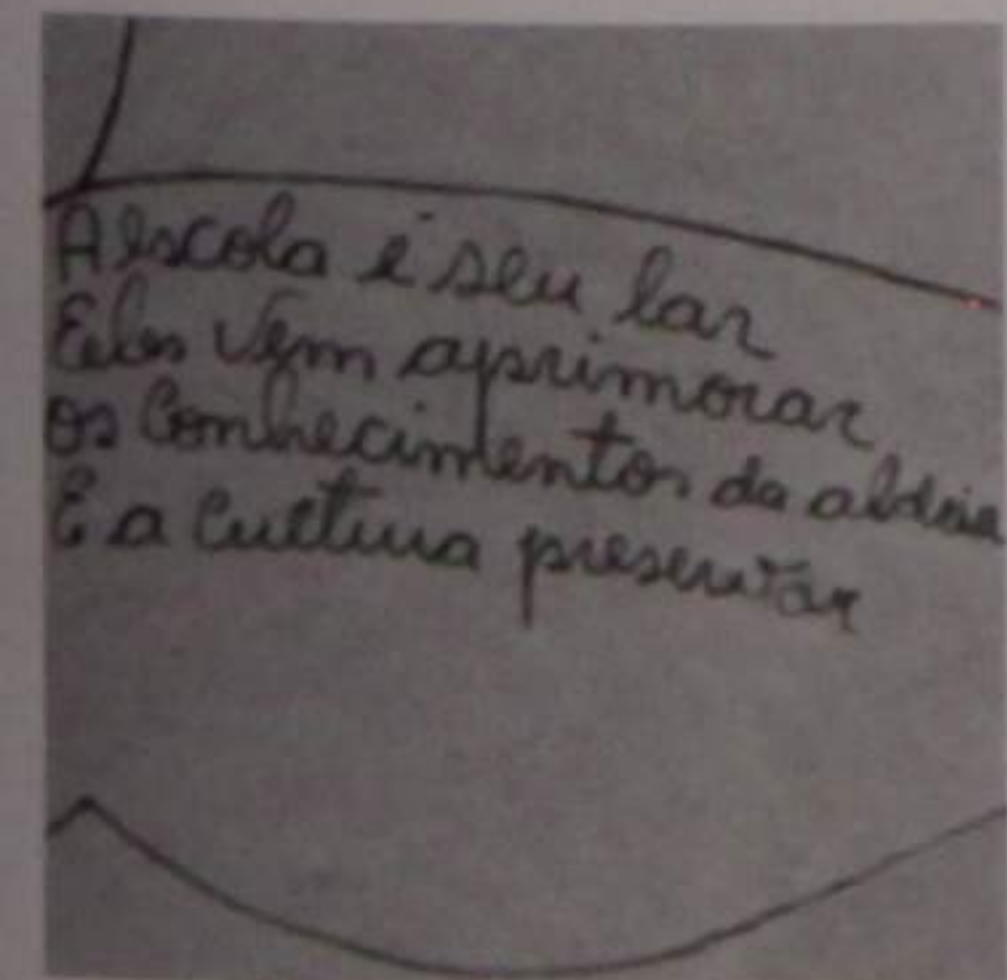 A escola é seu lar
Eles vem aprimorar
os conhecimentos da aldeia
E a cultura preservar